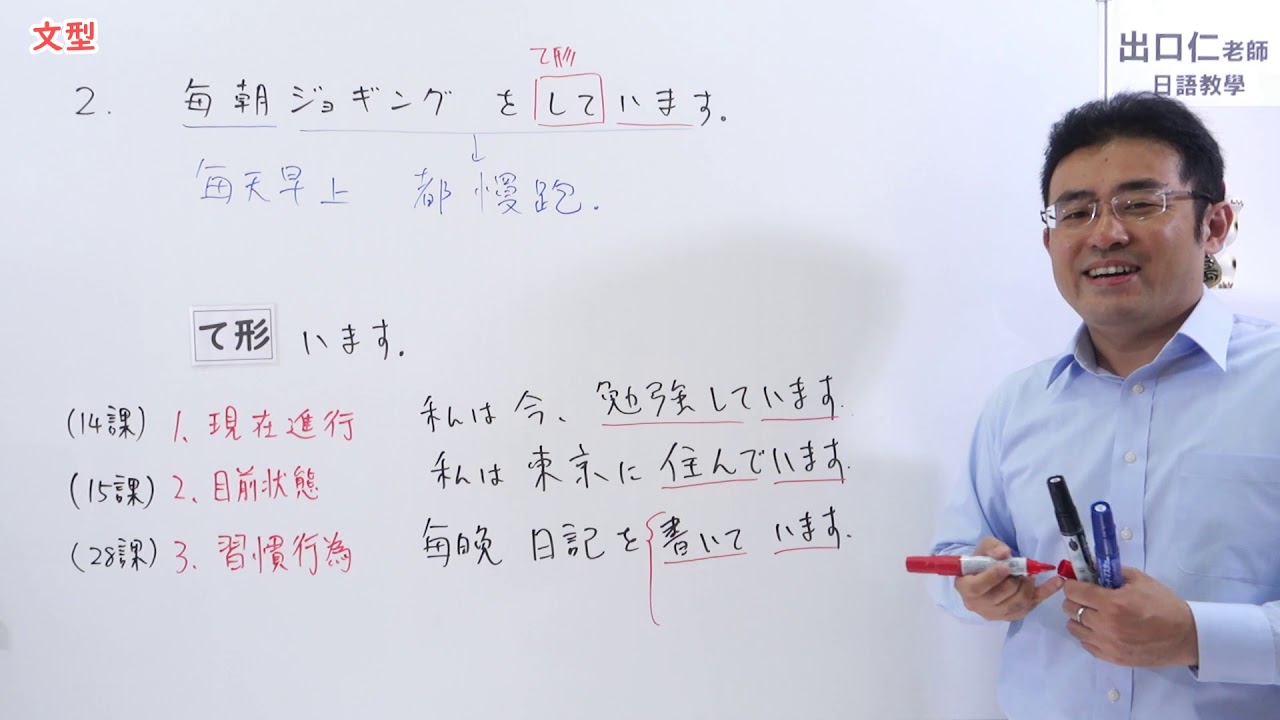 文型
出口仁老師
日語教學
て形
2. 毎朝ジョギングをしています。
每天早上 都慢跑.
て形 います。
(14課) 1. 現在進行 私は今、勉強しています.
(15課) 2. 目前状態 私は東京に住んでいます.
(28課) 3. 習慣行為 毎晩 日記を書いて います.